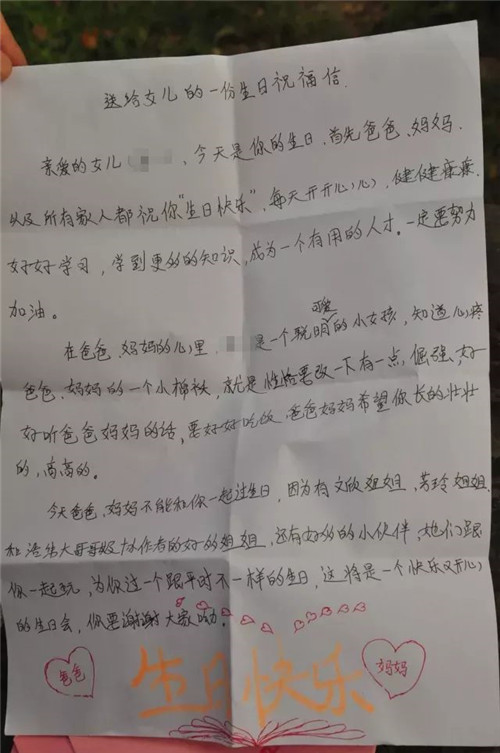 送给女儿的一份生日祝福信.
亲爱的女儿 ，今天是你的生日，首先爸爸、妈妈.
以及所有家人都祝你“生日快乐”，每天开开心心，健健康康，
好好学习，学到更多的知识，成为一个有用的人才。一定要努力
加油。
在爸爸、妈妈的心里， 是一个聪明可爱的小女孩，知道心疼
爸爸、妈妈的一个小棉袄，就是性格要改一下有一点，倔强，好
好听爸爸妈妈的话，要好好吃饭，爸爸妈妈希望你长的壮壮
的，高高的。
今天爸爸、妈妈不能和你一起过生日，因为有文欣姐姐，芳玲姐姐
和浩结大哥哥及协作者的好多姐姐，还有好多的小伙伴，她们跟
你一起玩，为你过一个跟平时不一样的生日，这将是一个快乐又开心
的生日会，你要谢谢大家呦。
爸爸
生日快乐
妈妈